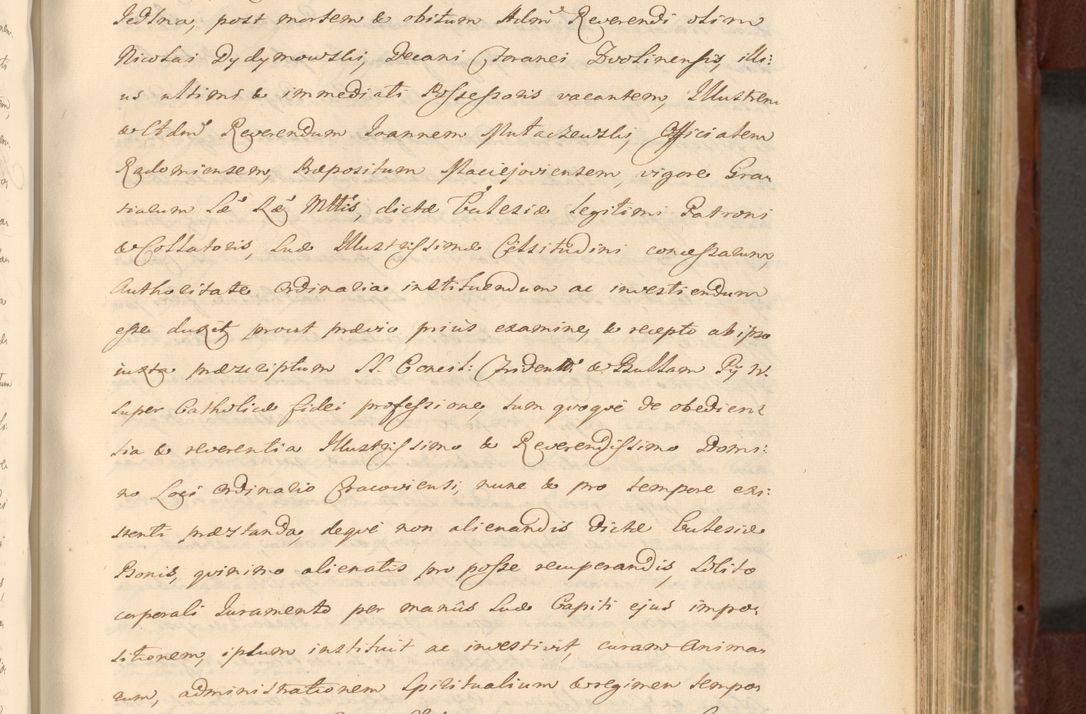 Jedlna, post mortem & obitum Adm. Reverendi olim
Nicolai Dydymowski, Decani Foranei Zvolinensis, illi:
us ultimi & immediati Possessoris vacantem, Illustrem
& Adm. Reverendum Joannem Officialem
Radomiensem, Præpositum Maciejoviensem, vigore Gra-
tialum Sæ Ræ Mttis, dictæ Ecclesiæ legitimi Patroni
& Collatoris, Suæ Illustrissimæ Celsitudini concessarum,
Authoritate ordinaria instituendum ac investiendum
esse duxit, prout prævio priùs examine, & recepto ab ipso
iuxta præscriptum SS. Concil: Trident. & Bullam Pij IV.
super Catholicæ fidei professione, tum quoquè de obedien:
tia & reverentia Illustrissimo & Reverendissimo Domi:
no Loci Ordinario Cracoviensi, nunc & pro tempore exi:
stenti præstanda, dequè non alienandis dictæ Ecclesiæ
Bonis, quinimo alienatis pro posse recuperandis, solito
corporali Juramento per manûs suæ Capiti ejus impo-
sitionem, ipsum instituit ac investivit, curam Anima-
rum, administrationem Spiritualium & regimen tempo-